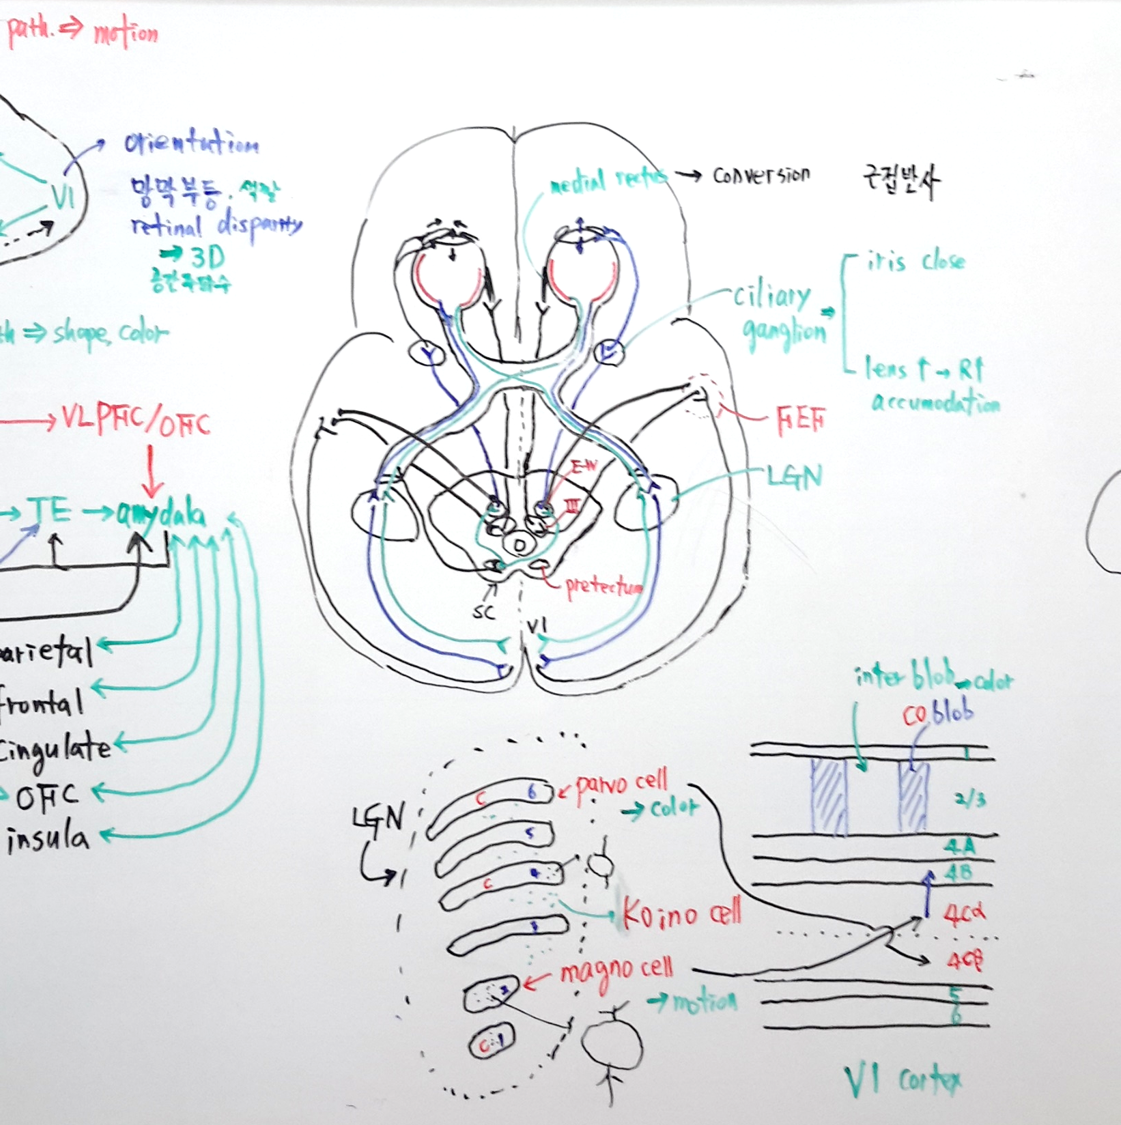 path. ⇒ motion
V1
orientation
망막부등.
retinal disparity
→ 3D
⇒ shape, color
→ VLPFC/OFC
→ TE → amydala
arietal
frontal
Cingulate
OFC
insula
medial rectus → conversion
근접반사
ciliary
ganglion →
iris close
lens↑ → R↑
accumodation
FEF
LGN
E-W
III
pretectum
SC
V1
LGN
C 6
5
C 4
3
2
C 1
parvo cell
→ color
Koino cell
magno cell
→ motion
inter blob → color
CO blob
1
2/3
4A
4B
4Cα
4Cβ
5
6
V1 cortex